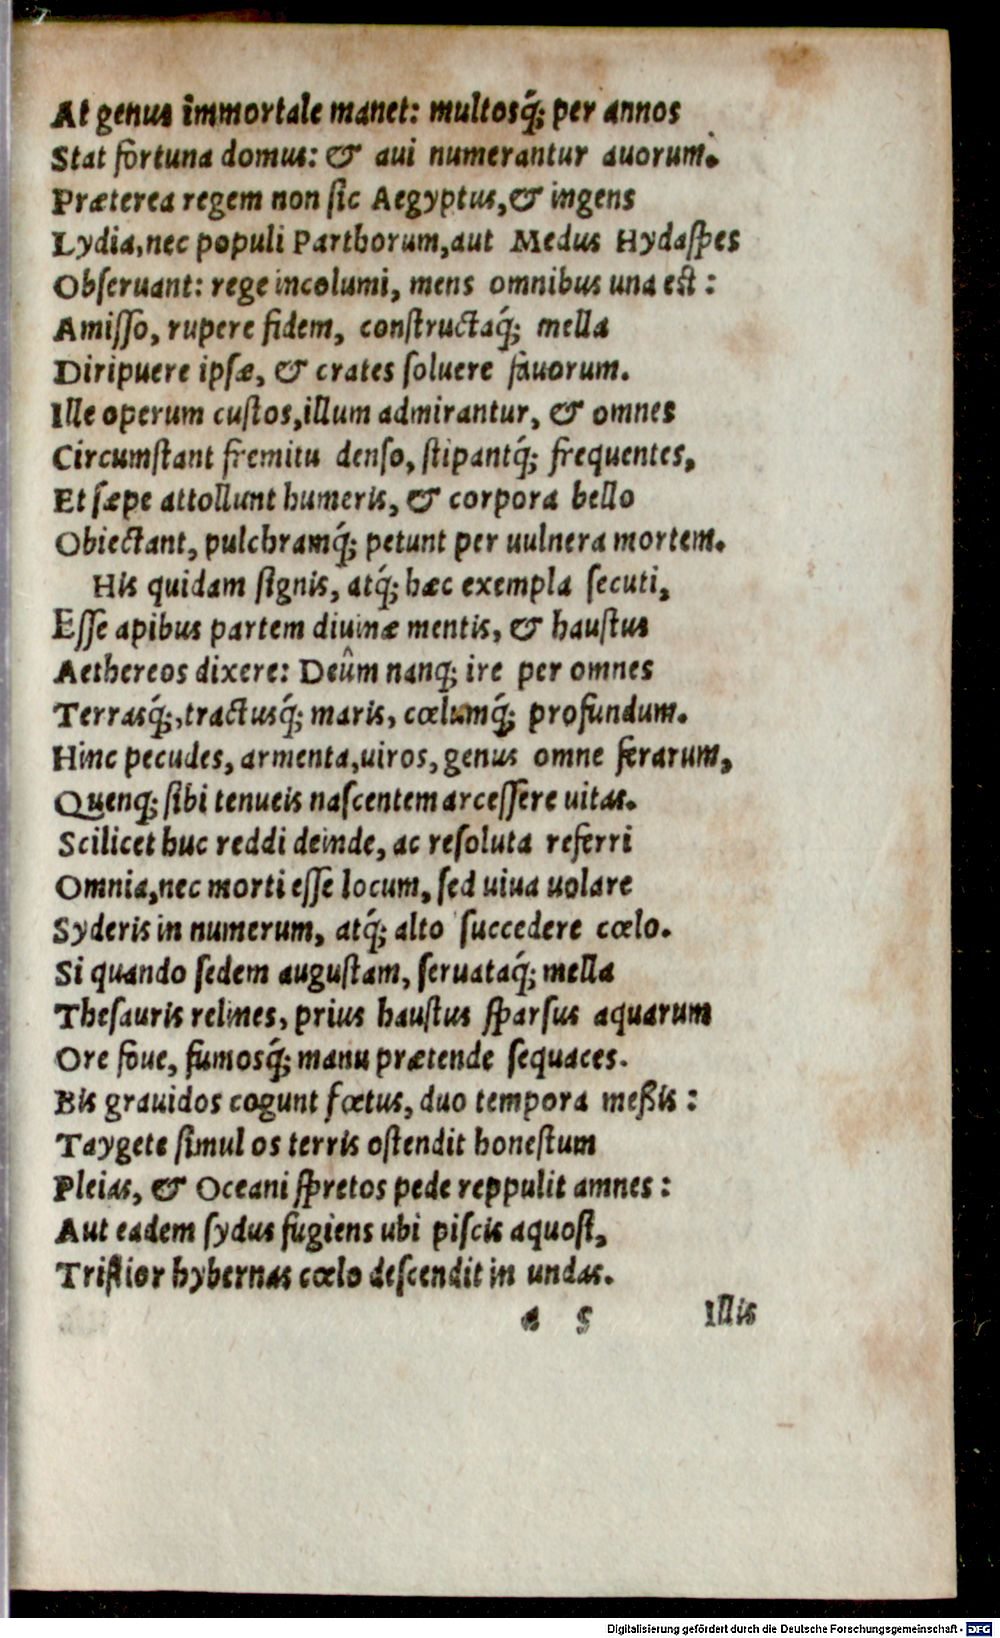 At genus immortale manet: multosq́; per annos
Stat fortuna domus: & aui numerantur auorum.
Præterea regem non sic Aegyptus,& ingens
Lydia,nec populi Parthorum,aut Medus Hydaspes
Obseruant: rege incolumi, mens omnibus una est:
Amisso, rupere fidem, constructaq́; mella
Diripuere ipsæ, & crates soluere fauorum.
Ille operum custos,illum admirantur, & omnes
Circumstant fremitu denso, stipantq́; frequentes,
Et sæpe attollunt humeris, & corpora bello
Obiectant, pulchramq́; petunt per uulnera mortem.
His quidam signis, atq́; hæc exempla secuti,
Esse apibus partem diuinæ mentis, & haustus
Aethereos dixere: Deûm nanq; ire per omnes
Terrasq́;,tractusq́; maris, cœlumq́; profundum.
Hinc pecudes, armenta,uiros, genus omne ferarum,
Quenq; sibi tenueis nascentem arcessere uitas.
Scilicet huc reddi deinde, ac resoluta referri
Omnia,nec morti esse locum, sed uiua uolare
Syderis in numerum, atq́; alto succedere cœlo.
Si quando sedem augustam, seruataq́; mella
Thesauris relines, prius haustus sparsus aquarum
Ore foue, fumosq́; manu prætende sequaces.
Bis grauidos cogunt fœtus, duo tempora meßis:
Taygete simul os terris ostendit honestum
Pleias, & Oceani spretos pede reppulit amnes:
Aut eadem sydus fugiens ubi piscis aquosi,
Tristior hybernas cœlo descendit in undas.
a 5 Illis
Digitalisierung gefördert durch die Deutsche Forschungsgemeinschaft - DFG